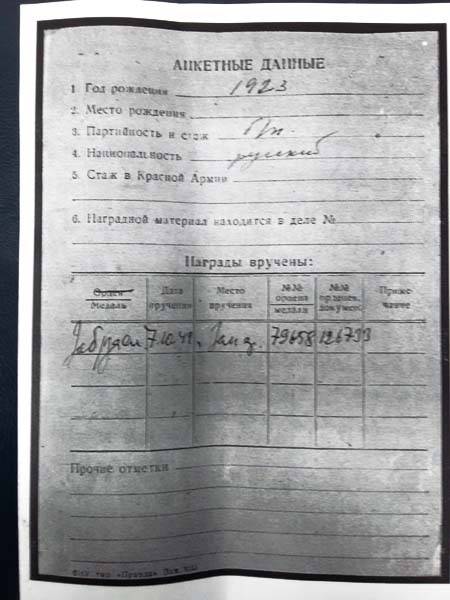 АНКЕТНЫЕ ДАННЫЕ
1. Год рождения 1923
2. Место рождения
3. Партийность и стаж б/п.
4. Национальность русский
5. Стаж в Красной Армии
6. Наградной материал находится в деле №
Награды вручены:
Орден Медаль Дата вручения Место вручения №№ ордена медали №№ орденск. докумен. Приме- чание
79658 126733
Прочие отметки